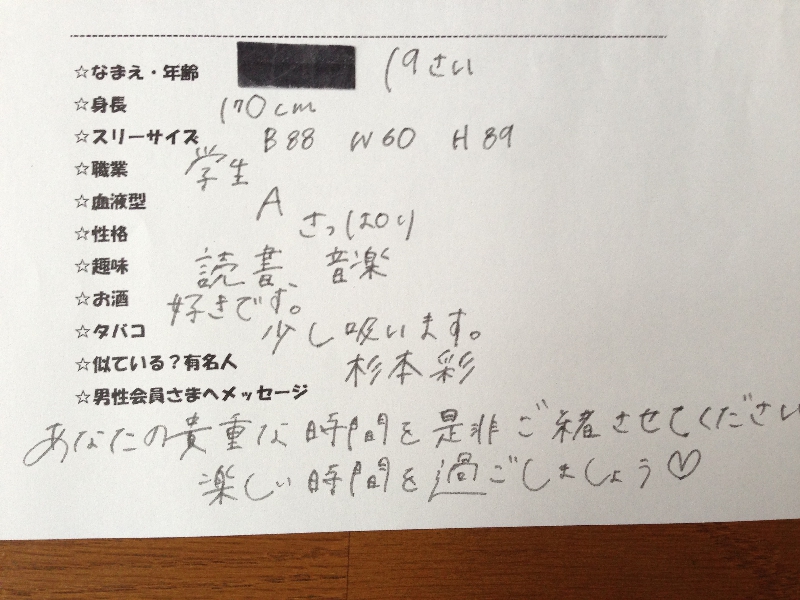 ☆なまえ・年齢 19さい
☆身長 170cm
☆スリーサイズ B88 W60 H89
☆職業 学生
☆血液型 A
☆性格 さっぱり
☆趣味 読書、音楽
☆お酒 好きです。
☆タバコ 少し吸います。
☆似ている？有名人 杉本彩
☆男性会員さまへメッセージ
あなたの貴重な時間を是非ご緒させてください
楽しい時間を過ごしましょう♡